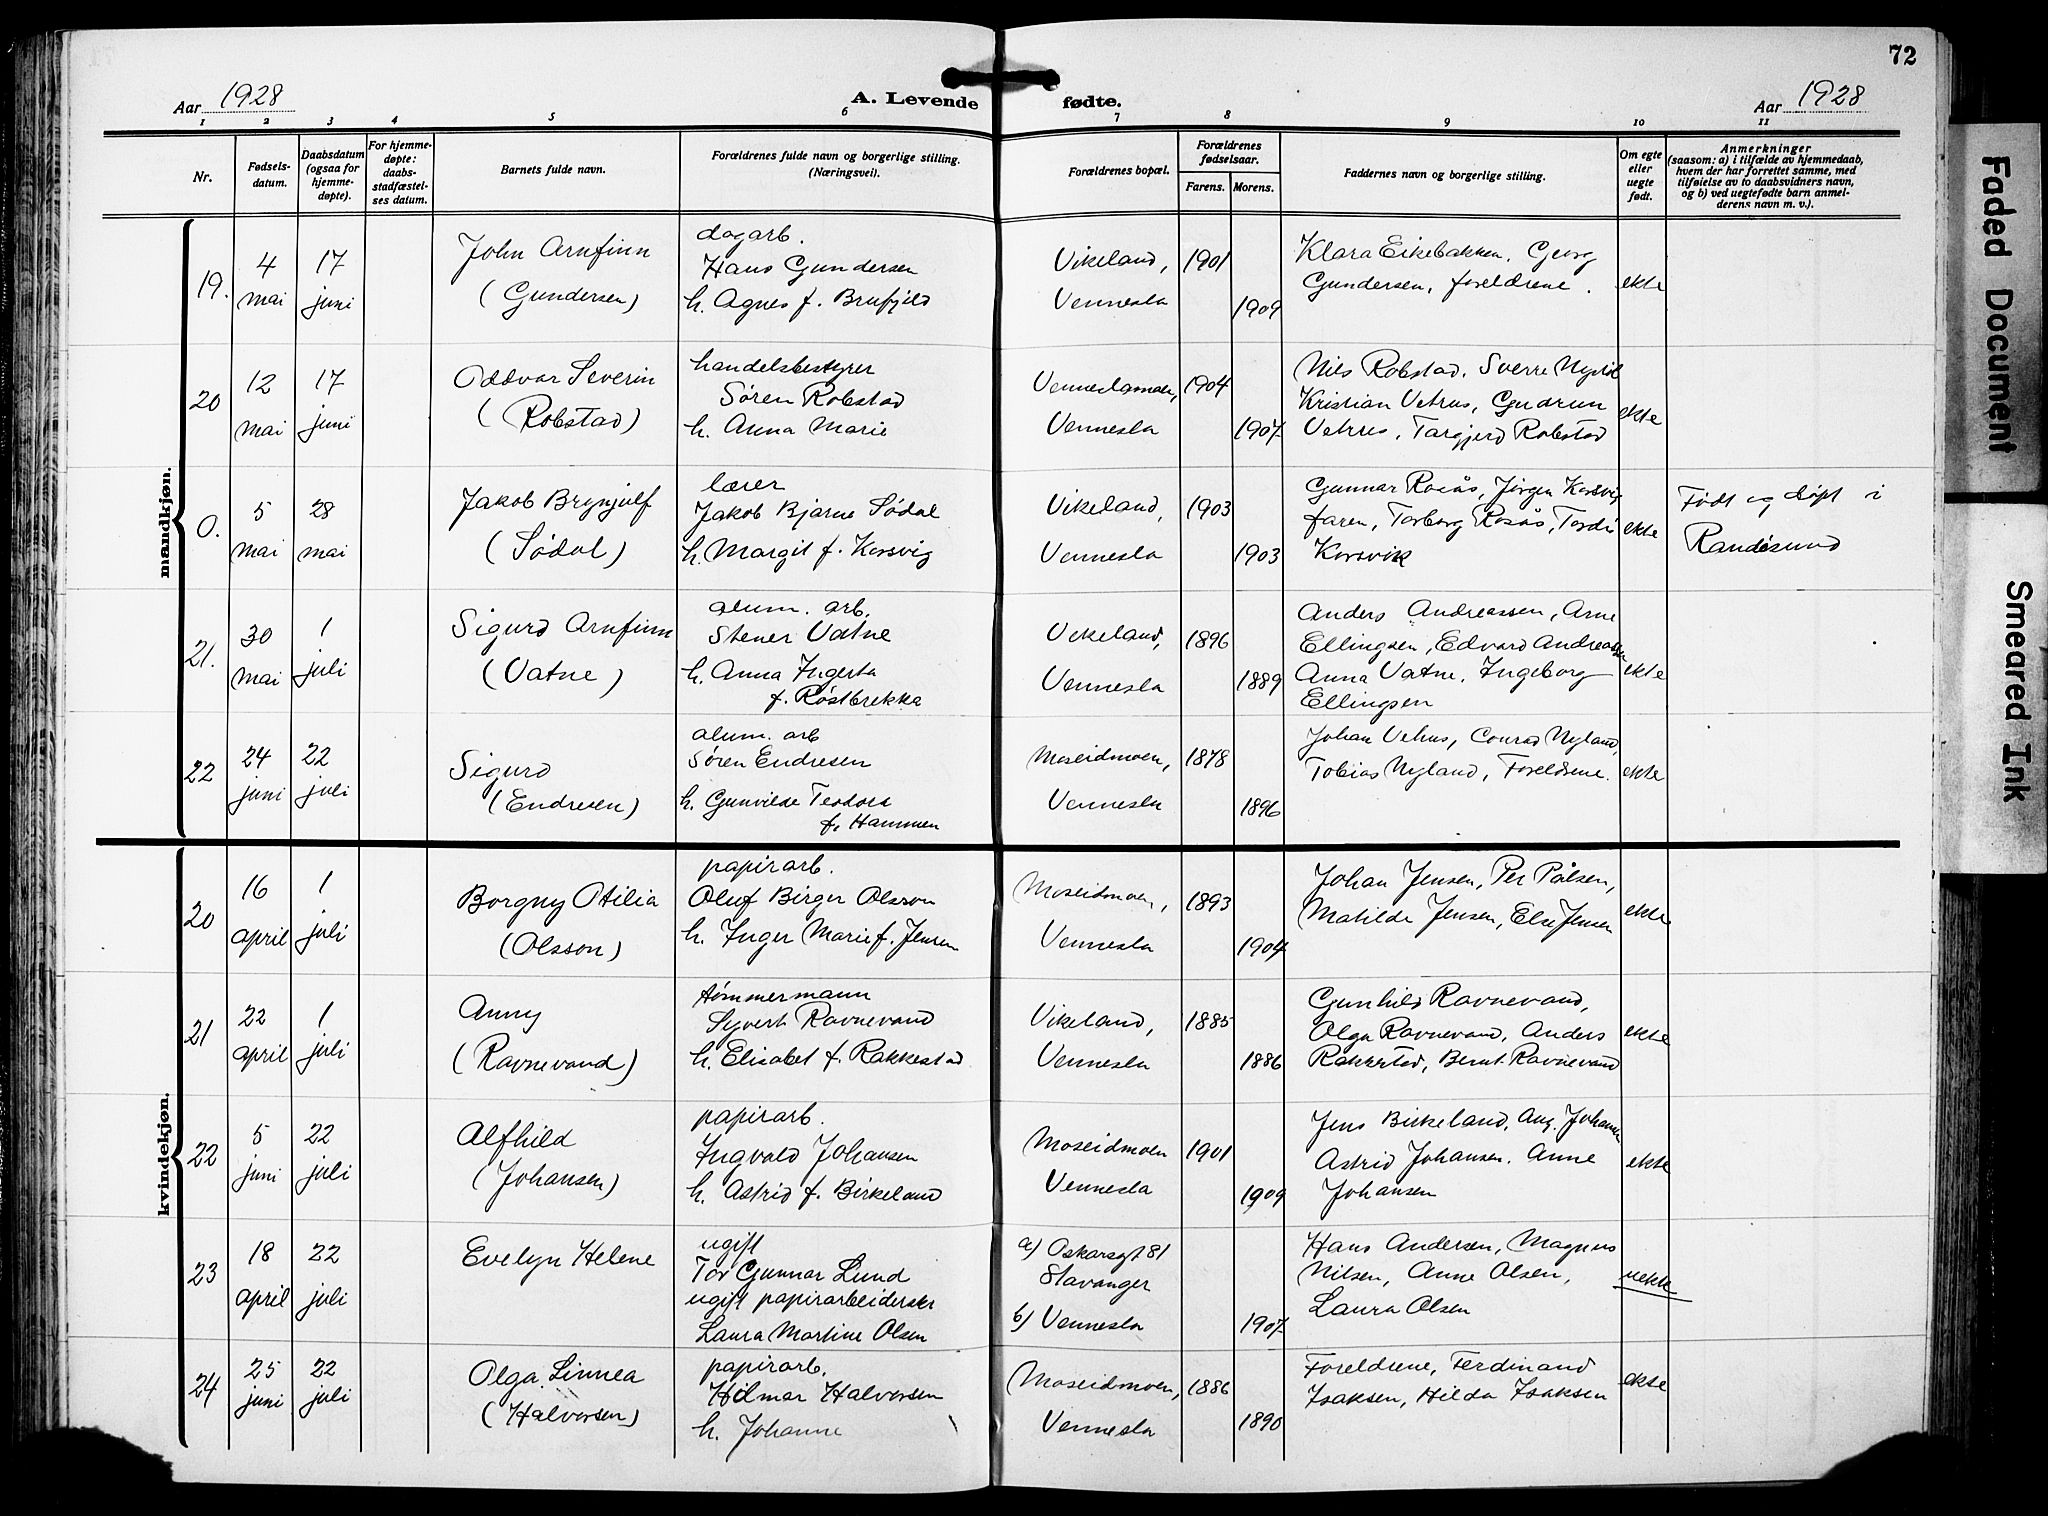 72
Aar 1928
A. Levende fødte.
Aar 1928
1 2 3 4 5 6 7 8 9 10 11
Nr.
Fødsels-
datum.
Daabsdatum
(ogsaa for
hjemme-
døpte).
For hjemme-
døpte:
daabs-
stadfæstel-
ses datum.
Barnets fulde navn.
Forældrenes fulde navn og borgerlige stilling.
(Næringsvei).
Forældrenes bopæl.
Forældrenes
fødselsaar.
Farens. Morens.
Faddernes navn og borgerlige stilling.
Om egte
eller
uegte
født.
Anmerkninger
(saasom: a) i tilfælde av hjemmedaab,
hvem der har forrettet samme, med
tilføielse av to daabsvidners navn,
og b) ved uegtefødte barn anmel-
derens navn m. v.).
mandkjøn.
19.
4
mai
17
juni
John Arnfinn
(Gundersen)
dagarb.
Hans Gundersen
h. Agnes f. Brufjeld
Vikeland,
Vennesla
1901
1909
Klara Eikebakken, Georg
Gundersen, foreldrene.
ekte
20
12
mai
17
juni
Oddvar Severin
(Robstad)
handelsbestyrer
Søren Robstad
h. Anna Marie
Venneslamoen,
Vennesla
1904
1907
Nils Robstad, Sverre
Kristian Vehus, Gudrun
Vehus, Targjerd Robstad
ekte
0.
5
mai
28
mai
Jakob Brynjulf
(Sødal)
lærer
Jakob Bjarne Sødal
h. Margit f. Korsvig
Vikeland,
Vennesla
1903
1903
Gunnar Rosås, Jørgen Korsvig
faren, Torborg Rosås, Tordis
Korsvik
ekte
Født og døpt i
Randesund
21.
30
mai
1
juli
Sigurd Arnfinn
(Vatne)
alum. arb.
Stener Vatne
h. Anna Ingerta
f. Røstbrekka
Vikeland,
Vennesla
1896
1889
Anders Andreassen, Arne
Ellingsen, Edvard Andreassen
Anna Vatne, Ingeborg
Ellingsen
ekte
22
24
juni
22
juli
Sigurd
(Endresen)
alum. arb
Søren Endresen
h. Gunvilde Teodora
f. Hammen
Moseidmoen,
Vennesla
1878
1896
Johan Vehus, Conrad Nyland,
Tobias Nyland, Foreldrene.
ekte
kvindekjøn.
20
16
april
1
juli
Borgny Otilia
(Olsson)
papirarb.
Oluf Birger Olsson
h. Inger Marie f. Jensen
Moseidmoen,
Vennesla
1893
1904
Johan Jensen, Per Pålsen,
Matilde Jensen, Else Jensen
ekte
21
22
april
1
juli
Anny
(Ravnevand)
tømmermann
Syvert Ravnevand
h. Elisabet f. Rakkestad
Vikeland,
Vennesla
1885
1886
Gunhild Ravnevand,
Olga Ravnevand, Anders
Rakkestad, Bernt Ravnevand
ekte
22
5
juni
22
juli
Alfhild
(Johansen)
papirarb.
Ingvald Johansen
h. Astrid f. Birkeland
Moseidmoen
Vennesla
1901
1909
Jens Birkeland, Aug. Johansen
Astrid Johansen, Anne
Johansen
ekte
23
18
april
22
juli
Evelyn Helene
ugift
Tor Gunnar Lund
ugift papirarbeiderske
Laura Martine Olsen
a) Oskarsgt 81
Stavanger
b) Vennesla
1907
Hans Andersen, Magnus
Nilsen, Anne Olsen,
Laura Olsen
uekte
24
25
juni
22
juli
Olga Linnea
(Halvorsen)
papirarb.
Hilmar Halvorsen
h. Johanne
Moseidmoen,
Vennesla
1886
1890
Foreldrene, Ferdinand
Isaksen, Hilda Isaksen
ekte
Faded Document
Smeared Ink